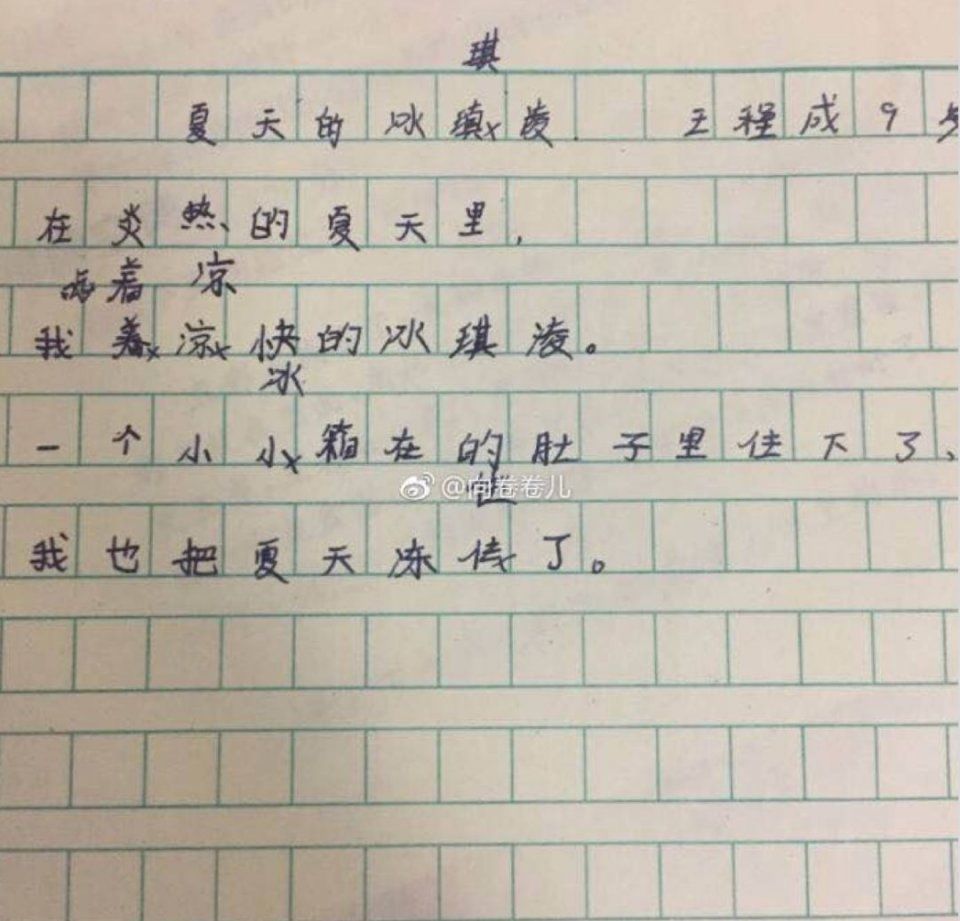 琪
夏天的冰瑱凌 王程成9岁
在炎热的夏天里,
喝着 凉
我着凉快的冰琪凌。
冰
一个小小箱在的肚子里住下了、
@向卷卷儿
住
我也把夏天冻住了。